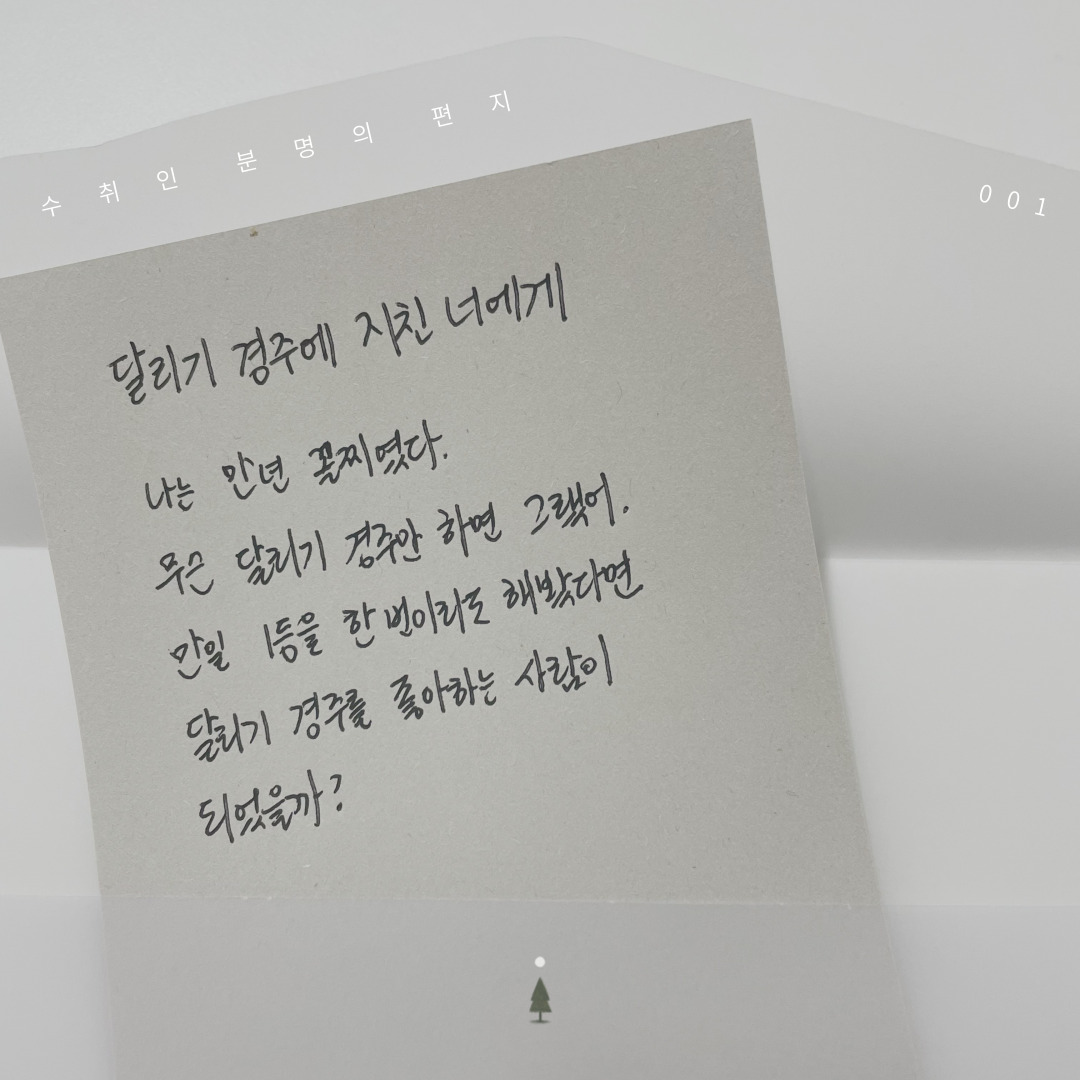 수취인 분명의 편지
001
달리기 경주에 지친 너에게
나는 만년 꼴찌였다.
무슨 달리기 경주만 하면 그랬어.
만일 1등을 한번이라도 해봤다면
달리기 경주를 좋아하는 사람이
되었을까?